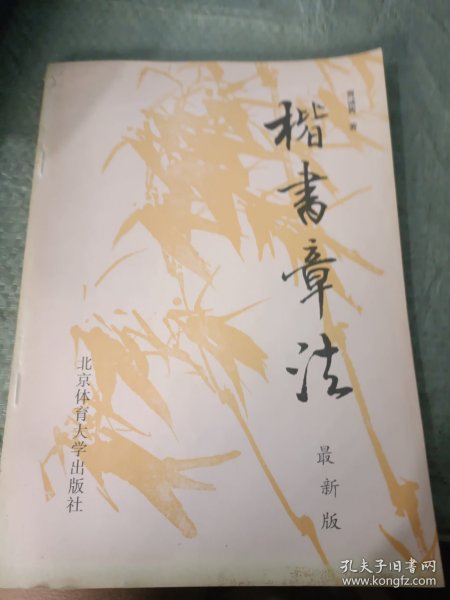 著
楷书章法
最新版
北京体育大学出版社
孔夫子旧书网
www.kongfz.com